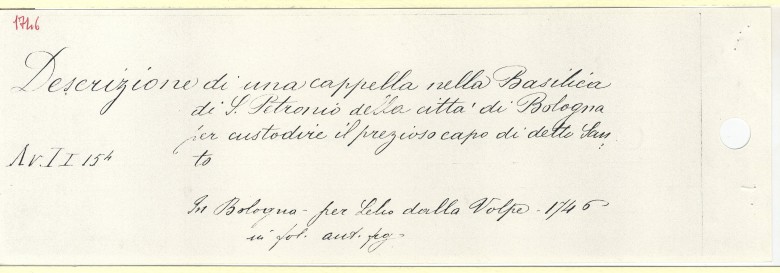 1746
Descrizione di una cappella nella Basilica
di S. Petronio della città di Bologna
per custodire il prezioso capo di detto San:
Av. II 154
to
In Bologna - per Lelio dalla Volpe - 1746
in fol. ant. fig.